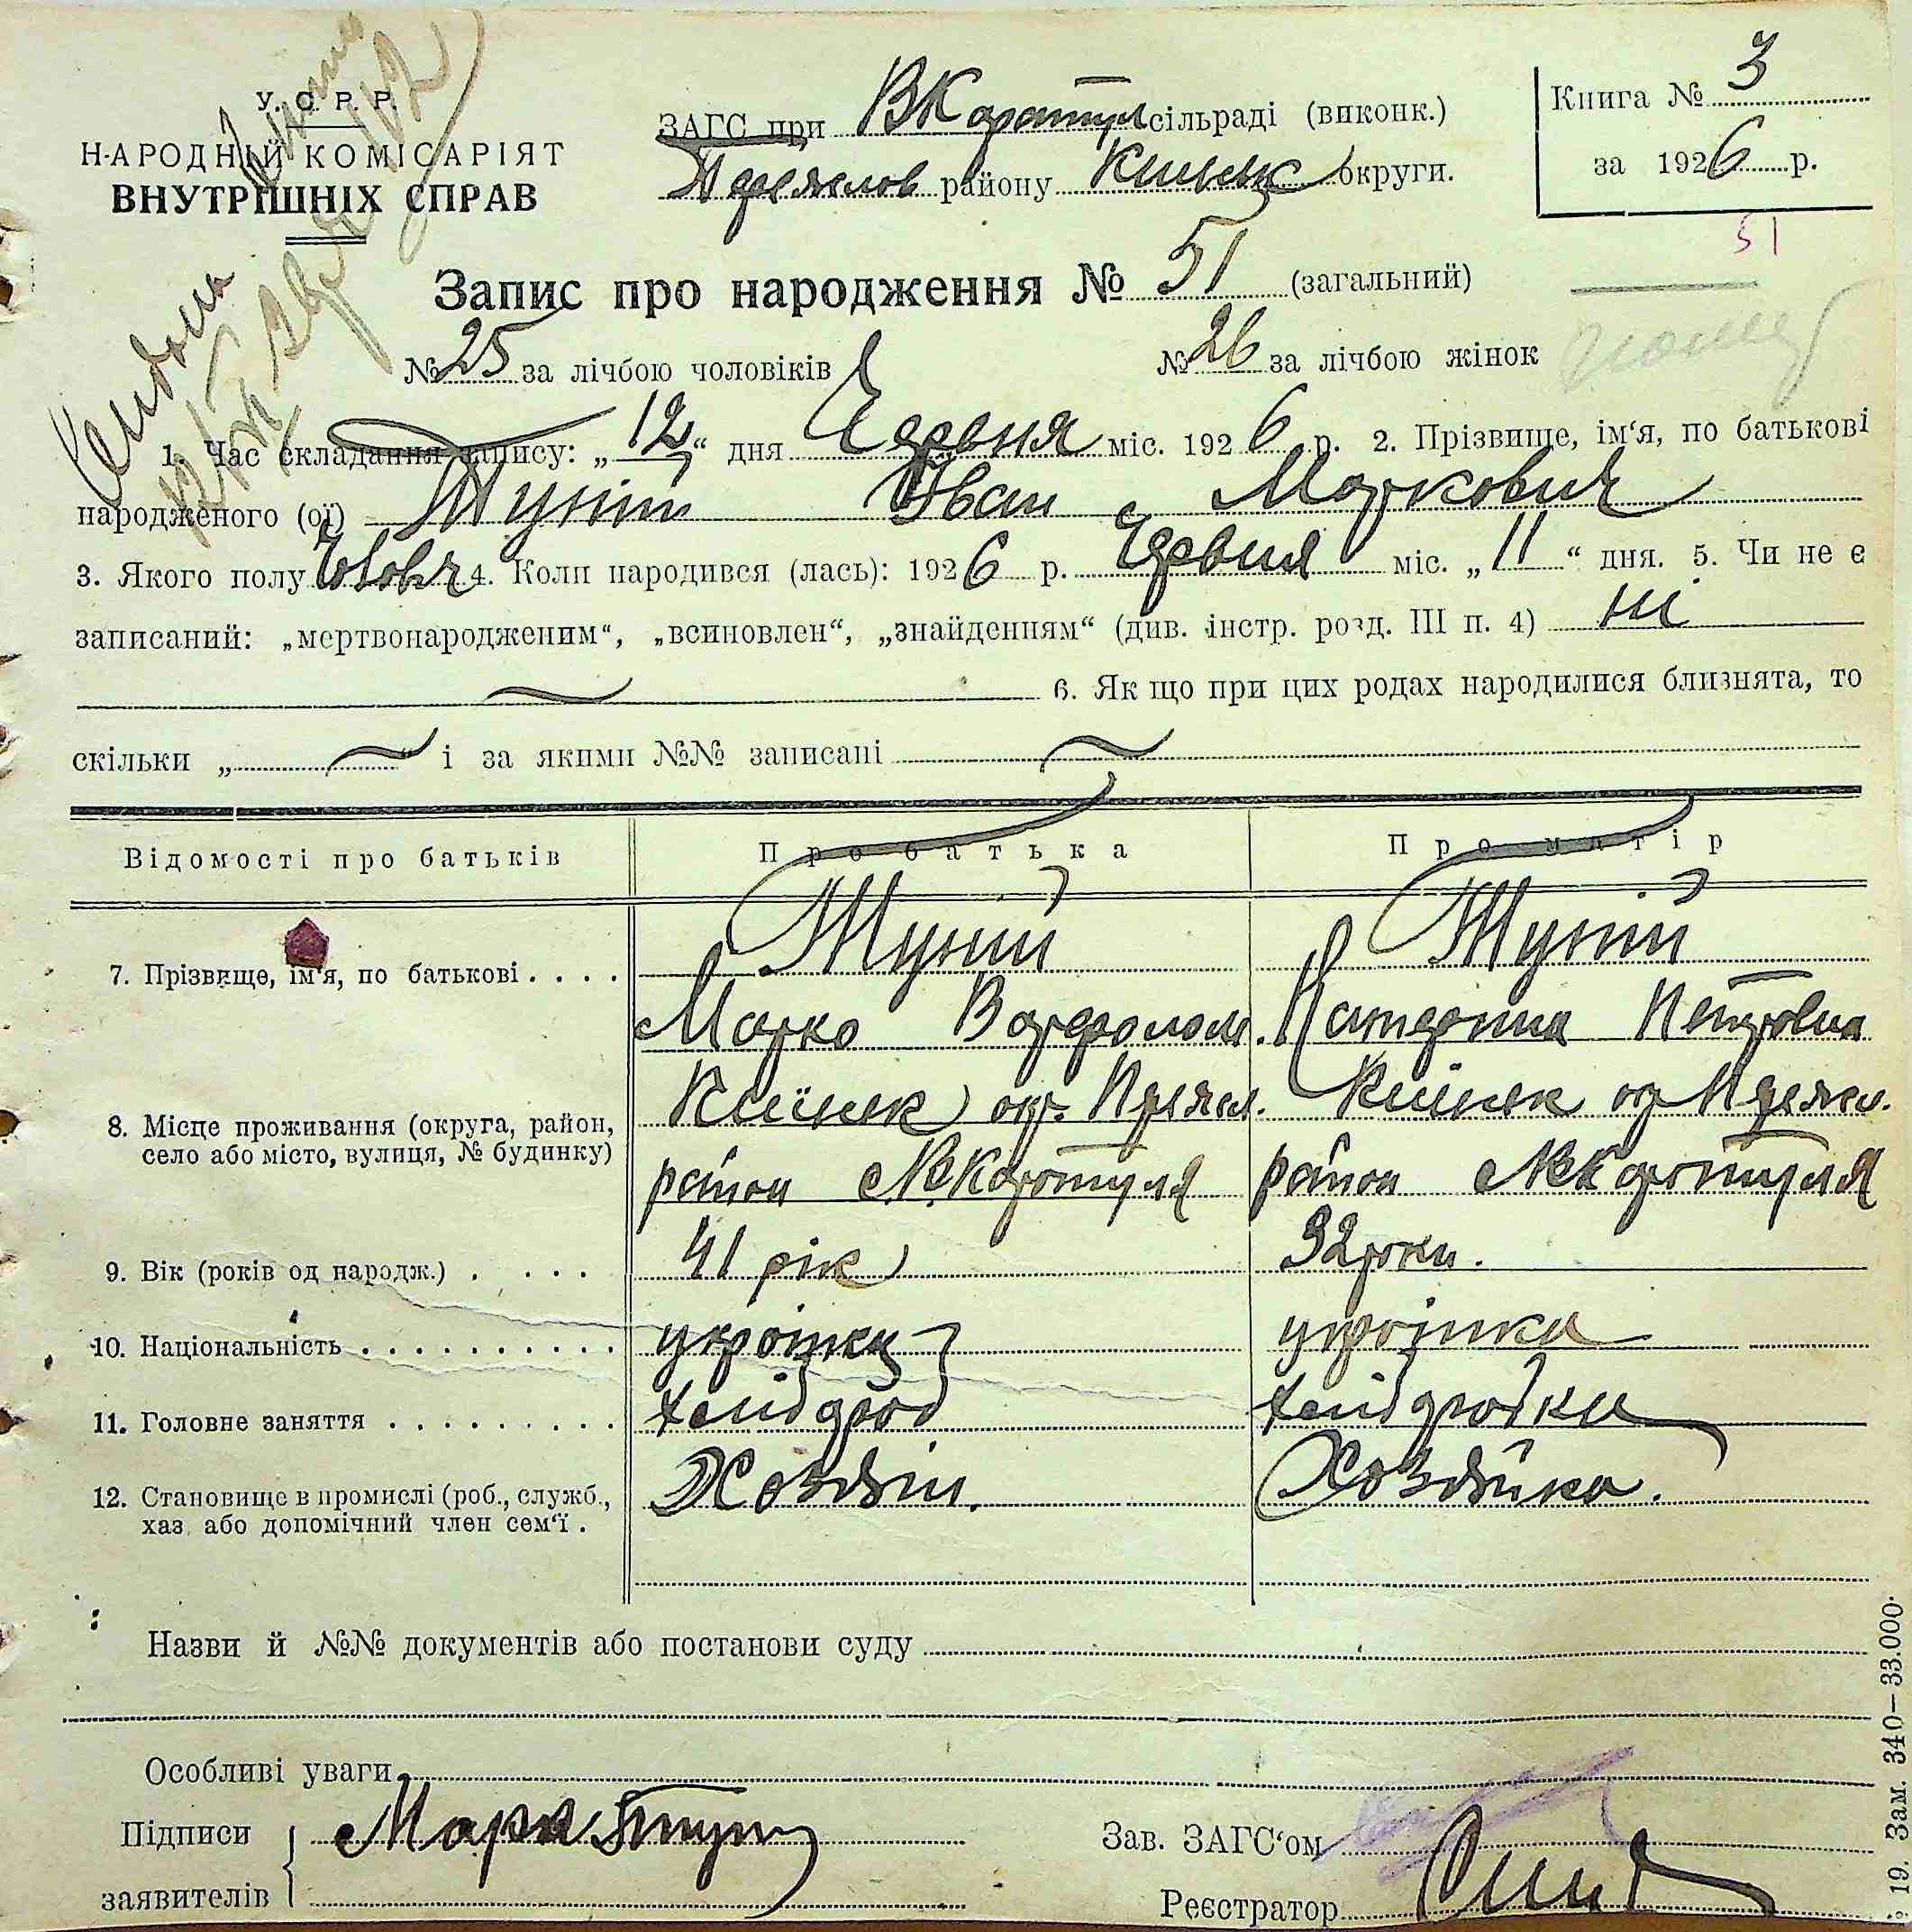 У. С. Р. Р.
НАРОДНІЙ КОМІСАРІЯТ
ВНУТРІШНІХ СПРАВ
ЗАГС при В Каратул сільраді (виконк.)
Переяслов району Київськ округи.
Книга № 3
за 1926 р.
51
Запис про народження № 51 (загальний)
№ 25 за лічбою чоловіків № 26 за лічбою жінок
1. Час складання запису: „12“ дня Червня міс. 1926 р. 2. Прізвище, ім‘я, по батькові
народженого (ої) Тупій Іван Маркович
3. Якого полу Чоловч 4. Коли народився (лась): 1926 р. Червня міс. „11“ дня. 5. Чи не є
записаний: „мертвонародженим“, „всиновлен“, „знайденням“ (див. інстр. розд. III п. 4) ні
6. Як що при цих родах народилися близнята, то
скільки „ “ і за якими №№ записані
Відомості про батьків Про батька Про матір
7. Прізвище, ім‘я, по батькові . . . . Тупій Тупій
Марко Варфолом. Катерина Петровна
8. Місце проживання (округа, район, село або місто, вулиця, № будинку) Київськ окр. Переясл. Київськ окр Переясл.
район Каратуля район Каратуля
9. Вік (років од народж.) . . . . 41 рік 32 роки.
10. Національність . . . . . . . . . . українец українка
11. Головне заняття . . . . . . . . . хлібороб хліборобка
12. Становище в промислі (роб., служб., хаз. або допомічний член сем‘ї . Хозяїн. Хозяйка.
Назви й №№ документів або постанови суду
Особливі уваги
Підписи
заявителів
Марк Тупи
Зав. ЗАГС‘ом
Реєстратор
19. Зам. 340—33.000.